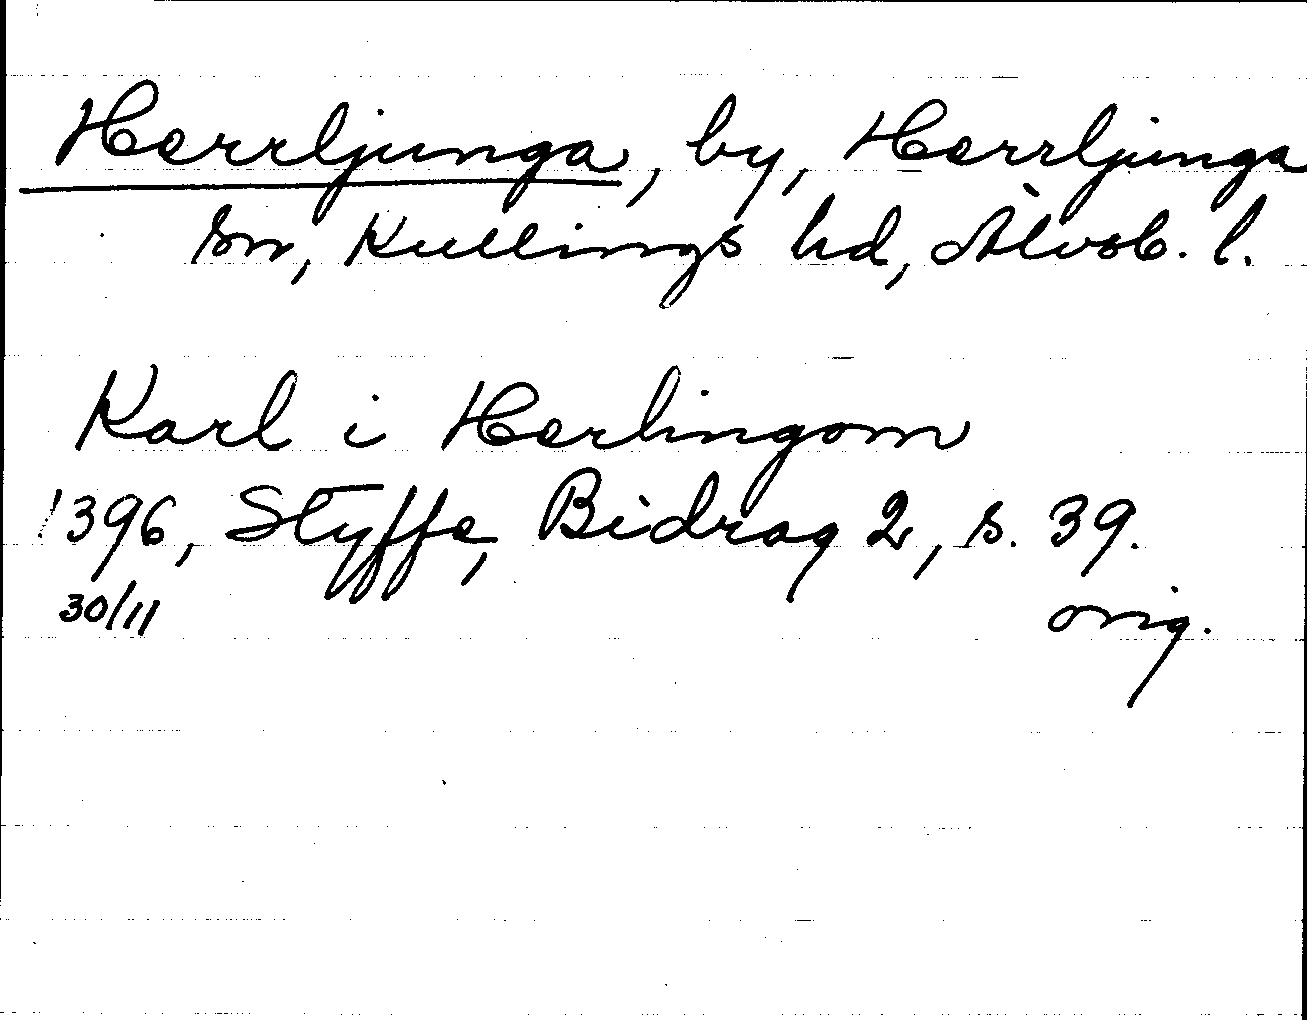 Herrljunga, by, Herrljunga
sn, Kullings hd, Älvsb. l.
Karl i Herlingom
1396, Styffe, Bidrag 2, s. 39.
30/11 orig.